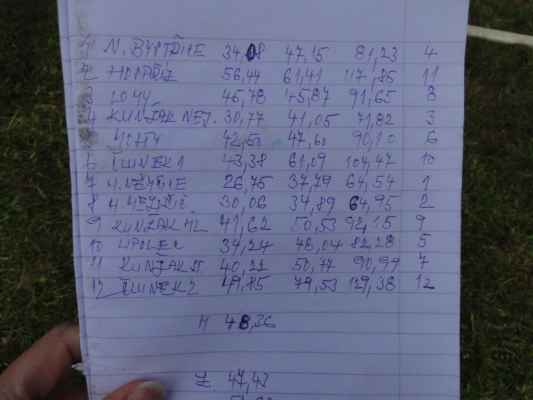 1 N. BYSTŘICE 34.08 47,15 81,23 4
2 HOSTĚJ 56,44 61,41 117,85 11
3 LOMY 45,78 45,87 91,65 8
4 KUNŽAK NEJ. 30,77 41,05 71,82 3
42,50 47,60 90,10 6
6 ČLUNEK 1 43,38 61,09 104,47 10
7 26,75 37,79 64,54 1
8 30,06 34,89 64,95 2
9 KUNŽAK 41,62 50,53 92,15 9
10 34,24 48,04 82,28 5
11 KUNŽAK 40,22 50,77 90,99 7
12 ČLUNEK 2 49,85 79,53 129,38 12
H 48,36
Z. 47,43